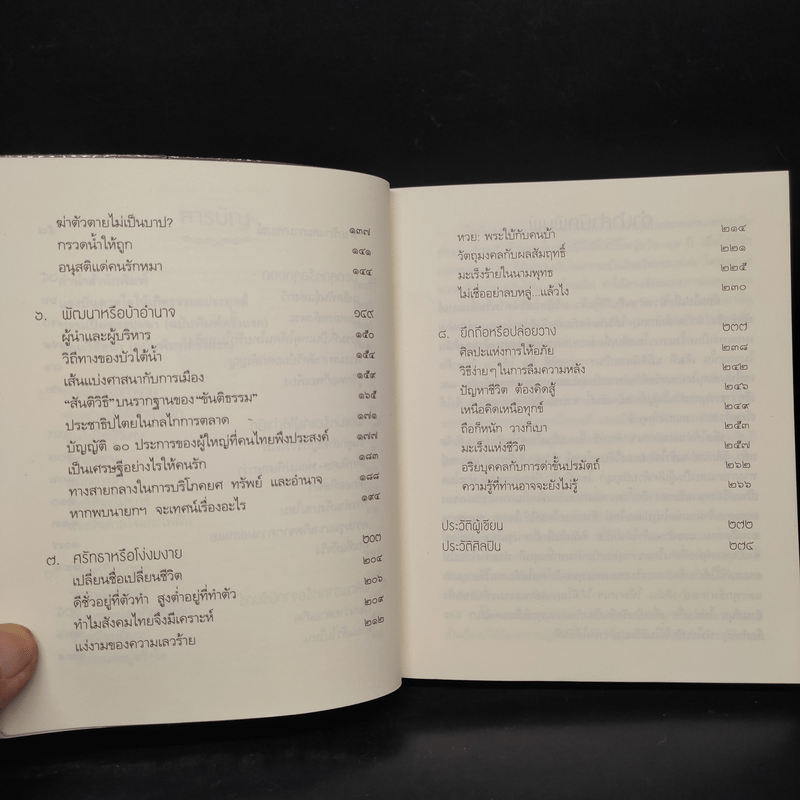 ฆ่าตัวตายไม่เป็นบาป? ๑๓๗
กรวดน้ำให้ถูก ๑๔๑
อนุสติแด่คนรักหมา ๑๔๔
๖. พัฒนาหรือบ้าอำนาจ ๑๔๙
ผู้นำและผู้บริหาร ๑๕๐
วิถีทางของบัวใต้น้ำ ๑๕๔
เส้นแบ่งศาสนากับการเมือง ๑๕๙
“สันติวิธี”บนรากฐานของ“ขันติธรรม” ๑๖๕
ประชาธิปไตยในกลไกการตลาด ๑๗๑
บัญญัติ ๑๐ ประการของผู้ใหญ่ที่คนไทยพึงประสงค์ ๑๗๗
เป็นเศรษฐีอย่างไรให้คนรัก ๑๘๓
ทางสายกลางในการบริโภคยศ ทรัพย์ และอำนาจ ๑๘๘
หากพบนายกฯ จะเทศน์เรื่องอะไร ๑๙๔
๗. ศรัทธาหรือโง่งมงาย ๒๐๓
เปลี่ยนชื่อเปลี่ยนชีวิต ๒๐๔
ดีชั่วอยู่ที่ตัวทำ สูงต่ำอยู่ที่ทำตัว ๒๐๖
ทำไมสังคมไทยจึงมีเคราะห์ ๒๐๙
แง่งามของความเลวร้าย ๒๑๒
หวย: พระใบ้กับคนบ้า ๒๑๔
วัตถุมงคลกับผลสัมฤทธิ์ ๒๒๑
มะเร็งร้ายในนามพุทธ ๒๒๕
ไม่เชื่ออย่าลบหลู่...แล้วไง ๒๓๐
๘. ยึดถือหรือปล่อยวาง ๒๓๗
ศิลปะแห่งการให้อภัย ๒๓๘
วิธีง่ายๆในการลืมความหลัง ๒๔๒
ปัญหาชีวิต ต้องคิดสู้ ๒๔๖
เหนือคิดเหนือทุกข์ ๒๔๙
ถือก็หนัก วางก็เบา ๒๕๓
มะเร็งแห่งชีวิต ๒๕๗
อริยบุคคลกับการด่าขั้นปรมัตถ์ ๒๖๒
ความรู้ที่ท่านอาจจะยังไม่รู้ ๒๖๖
ประวัติผู้เขียน ๒๗๒
ประวัติศิลปิน ๒๗๔